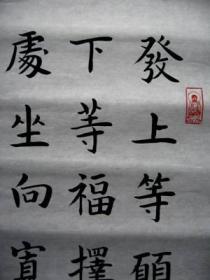 發上等願
下等福擇
處坐向寬